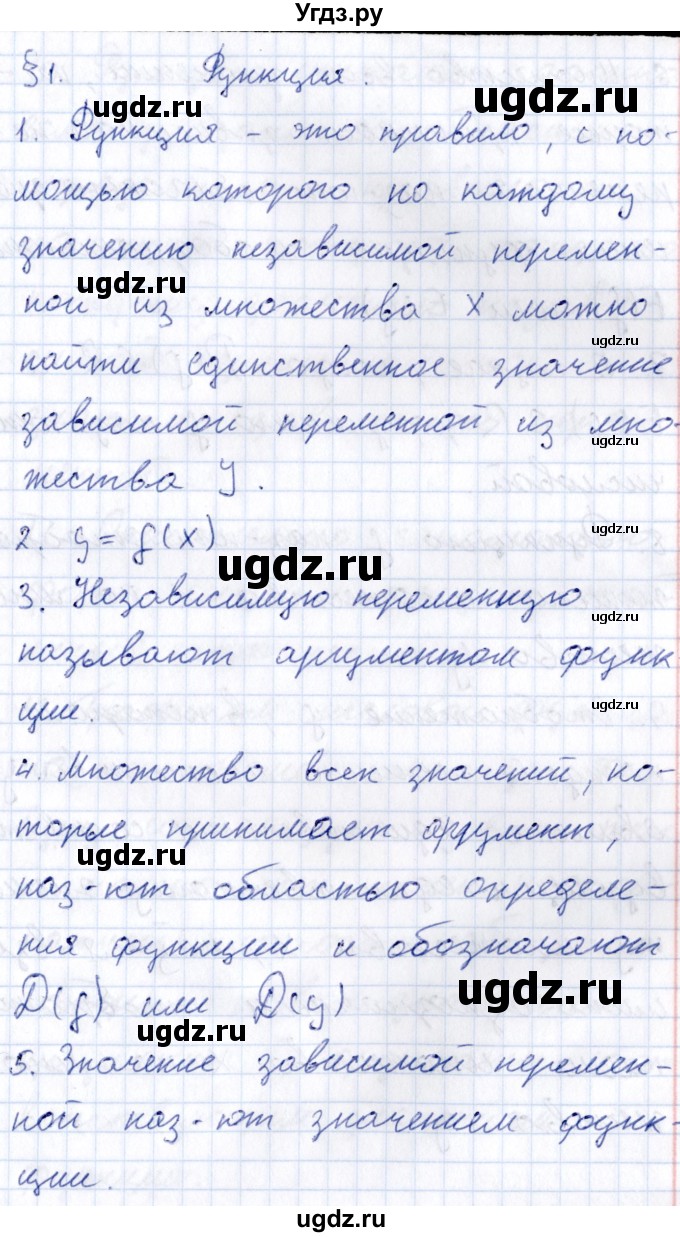 Угдз.ру
§ 1. Функция.
ugdz.ru
1. Функция – это правило, с по-
ugdz.ru
мощью которого по каждому
значению независимой перемен-
ugdz.ru
ной из множества X можно
ugdz.ru
найти единственное значение
зависимой переменной из мно-
ugdz.ru
жества У.
2. y = f(x)
ugdz.ru
3. Независимую переменную
ugdz.ru
называют аргументом функ-
ции.
ugdz.ru
4. Множество всех значений, ко-
торые принимает аргумент,
ugdz.ru
наз-ют областью определе-
ния функции и обозначают
D(f) или D(y)
ugdz.ru
ugdz.ru
5. Значение зависимой перемен-
ной наз-ют значением функ-
ции.
ugdz.ru